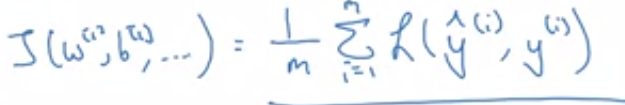 J(w^{[1]}, b^{[1]}, ...) = \frac{1}{m} \sum_{i=1}^{n} L(\hat{y}^{(i)}, y^{(i)})